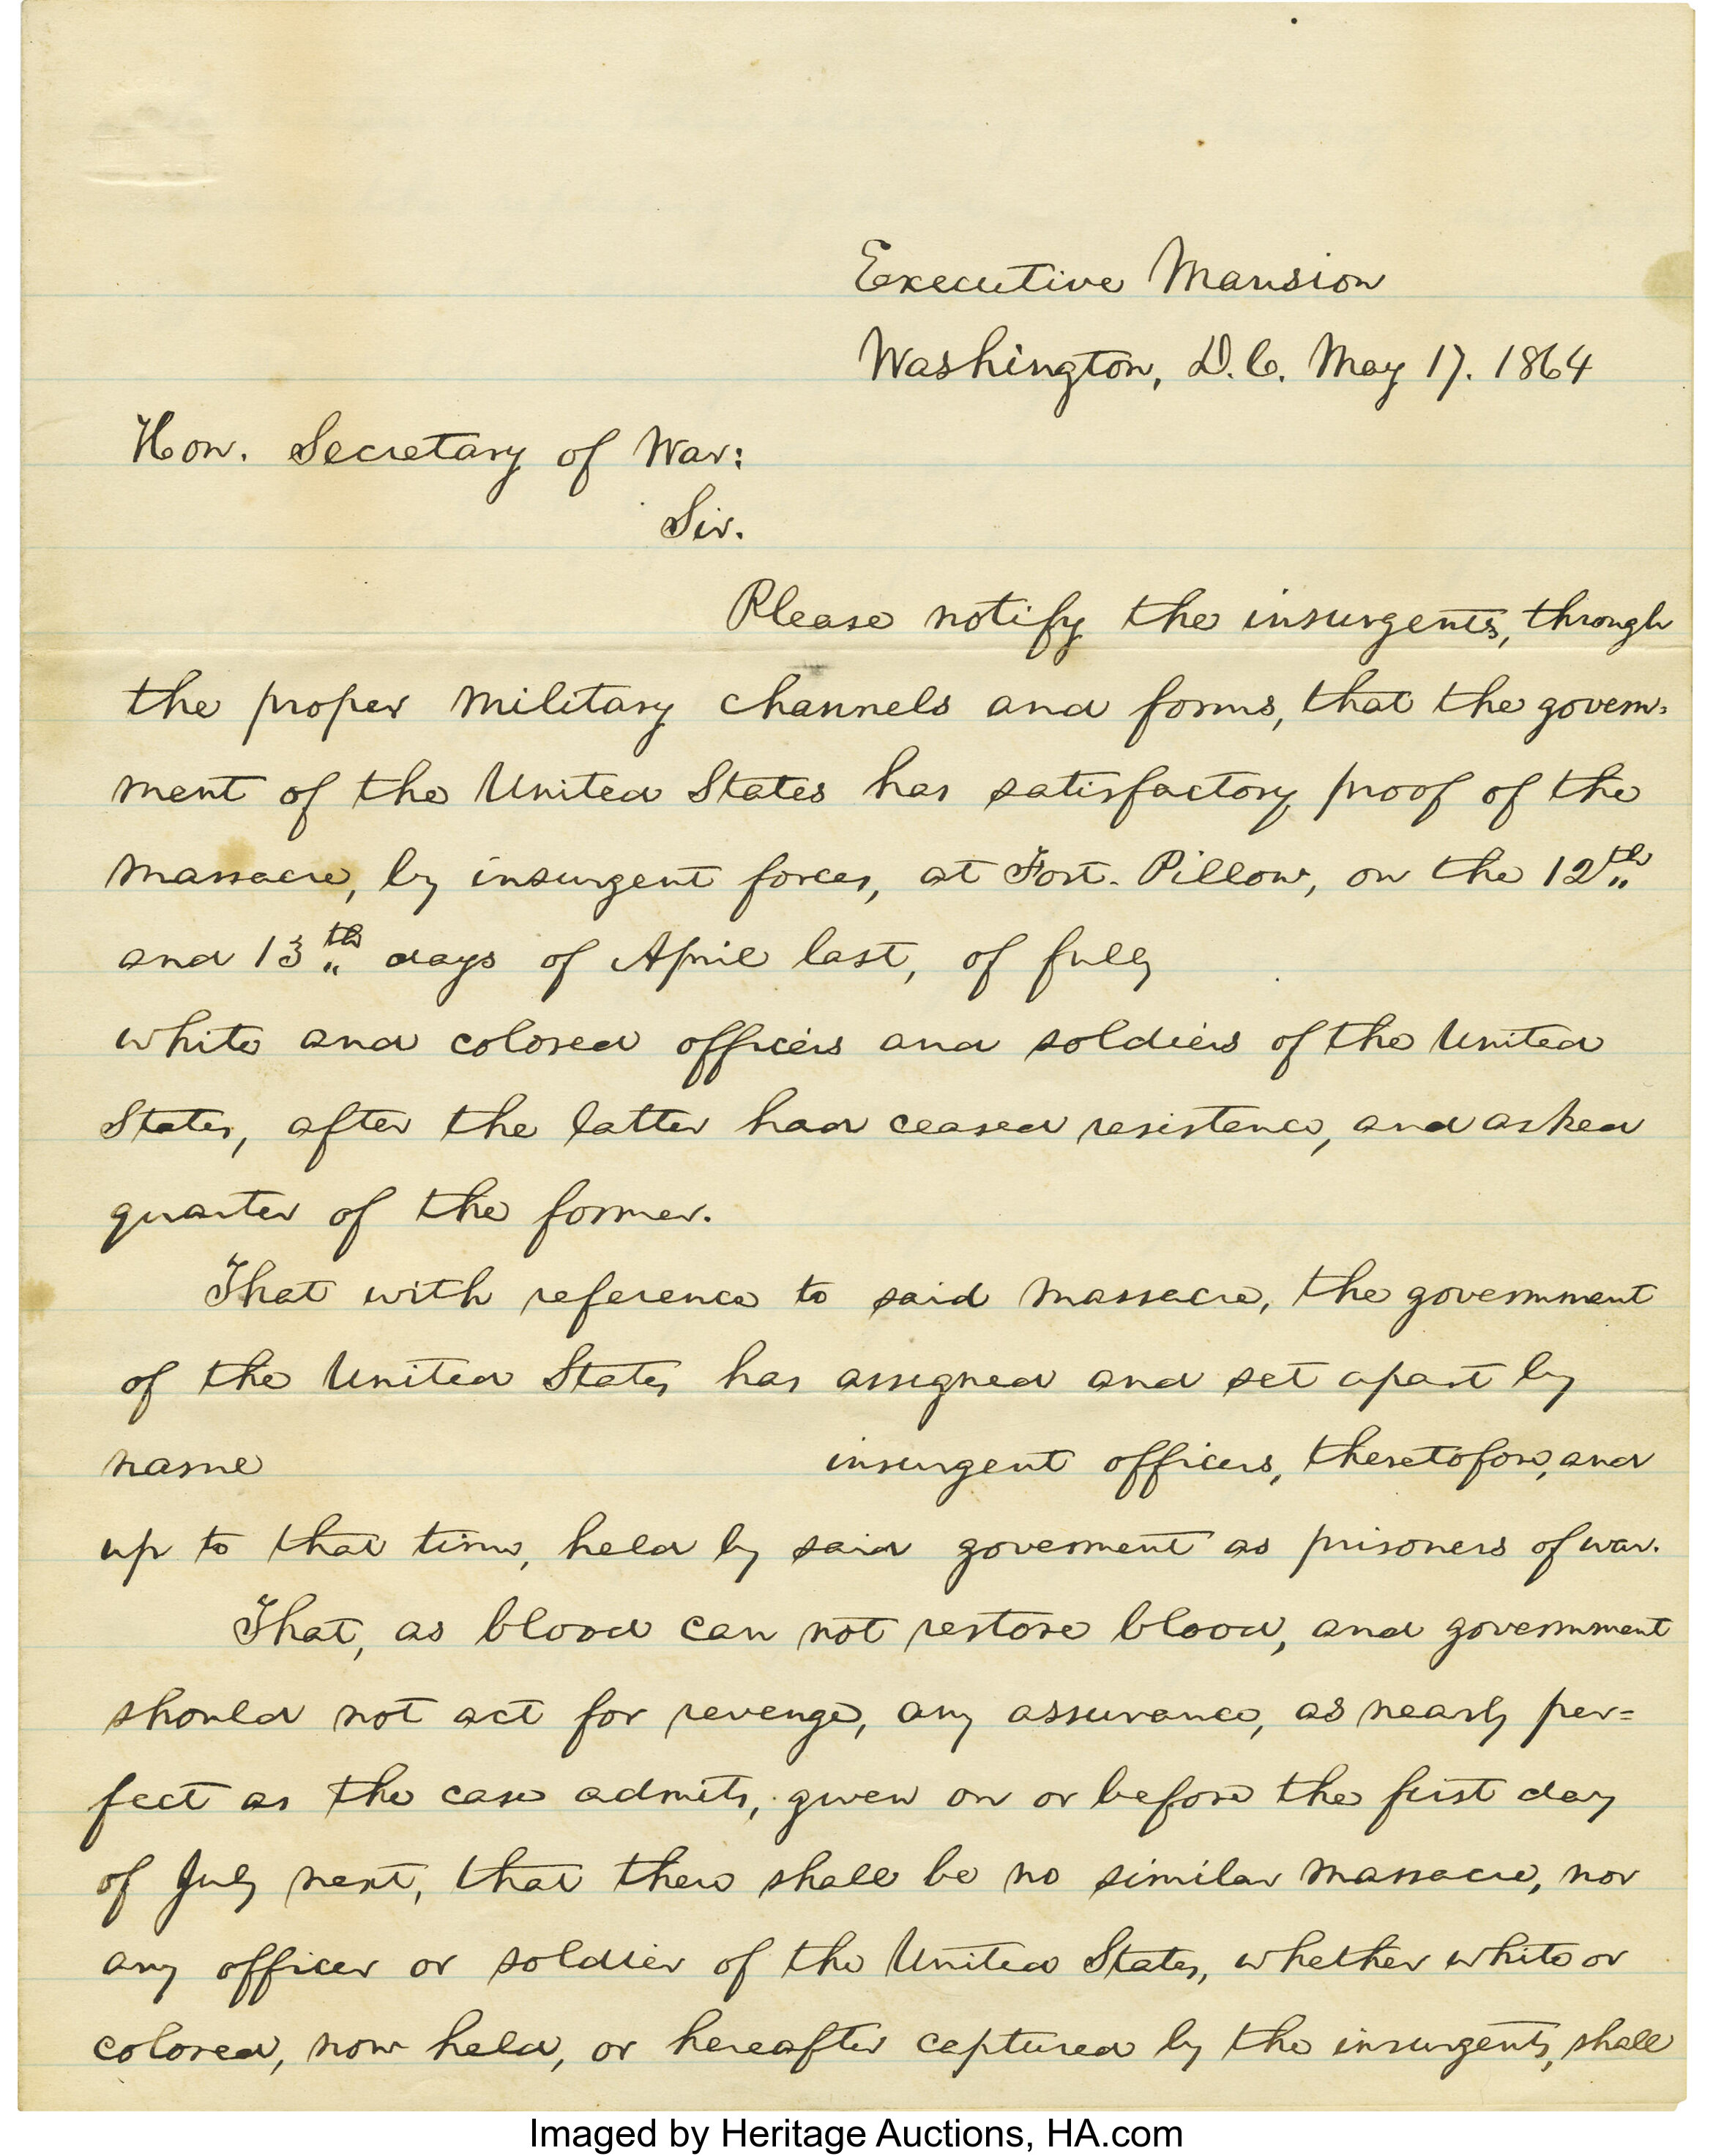 Executive Mansion
Washington, D.C. May 17. 1864
Hon. Secretary of War:
Sir.
Please notify the insurgents, through
the proper military channels and forms, that the govern-
ment of the United States has satisfactory proof of the
massacre, by insurgent forces, at Fort. Pillow, on the 12th
and 13th days of April last, of fully
white and colored officers and soldiers of the United
States, after the latter had ceased resistence, and asked
quarter of the former.
That with reference to said massacre, the government
of the United States has assigned and set apart by
name insurgent officers, theretofore, and
up to that time, held by said goverment as prisoners of war.
That, as blood can not restore blood, and government
should not act for revenge, any assurance, as nearly per=
fect as the case admits, given on or before the first day
of July next, that there shall be no similar massacre, nor
any officer or soldier of the United States, whether white or
colored, now held, or hereafter captured by the insurgents, shall
Imaged by Heritage Auctions, HA.com